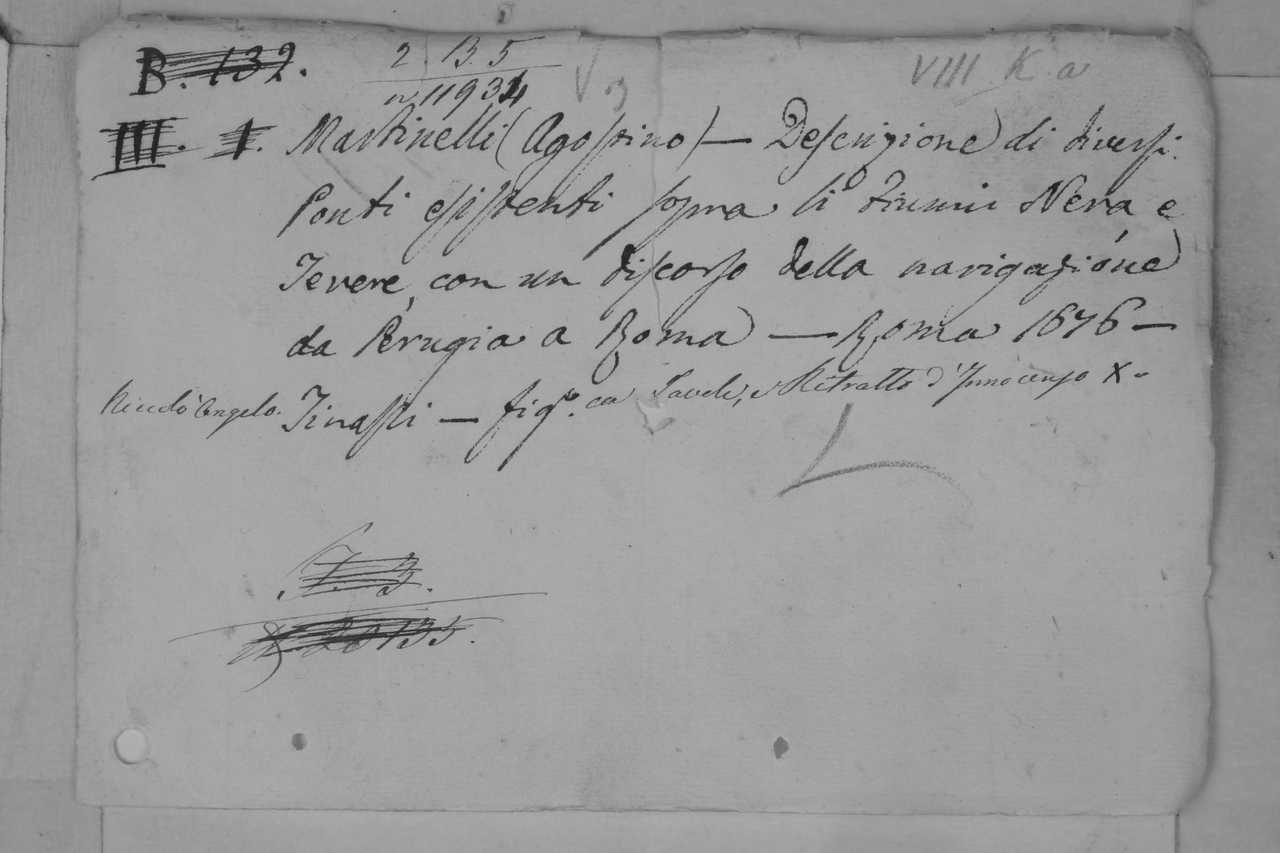 B. 132.
2. B. 5
n. 11934
VIII K a
III. 1. Martinelli (Agostino) — Descrizione di diversi
Ponti esistenti sopra li Fiumi Nera e
Tevere, con un discorso della navigazióne
da Perugia a Roma — Roma 1676 —
Niccolò Angelo. Tinassi — fig.º con Tavole, e Ritratto d'Innocenzo X.